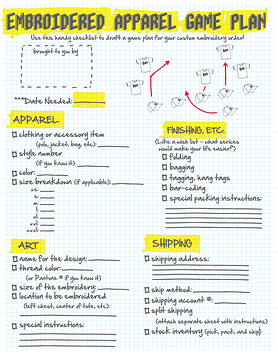 EMBROIDERED APPAREL GAME PLAN
Use this handy checklist to draft a game plan for your custom embroidery order!
brought to you by
***Date Needed:
APPAREL
clothing or accessory item
(polo, jacket, bag, etc):
style number
(if you know it):
color:
size breakdown (if applicable):
xs:
s:
m:
l:
xl:
xxl:
FINISHING, ETC.
(Like a wish list - what serices
would make your life easier?)
folding
bagging
tagging, hang tags
bar-coding
special packing instructions:
ART
name for the design:
thread color:
(or Pantone # if you know it)
size of the embroidery:
location to be embroidered
(left chest, center of tote, etc):
special instructions:
SHIPPING
shipping address:
ship method:
shipping account #:
split shipping
(attach separate sheet with instructions)
stock inventory (pick, pack, and ship)